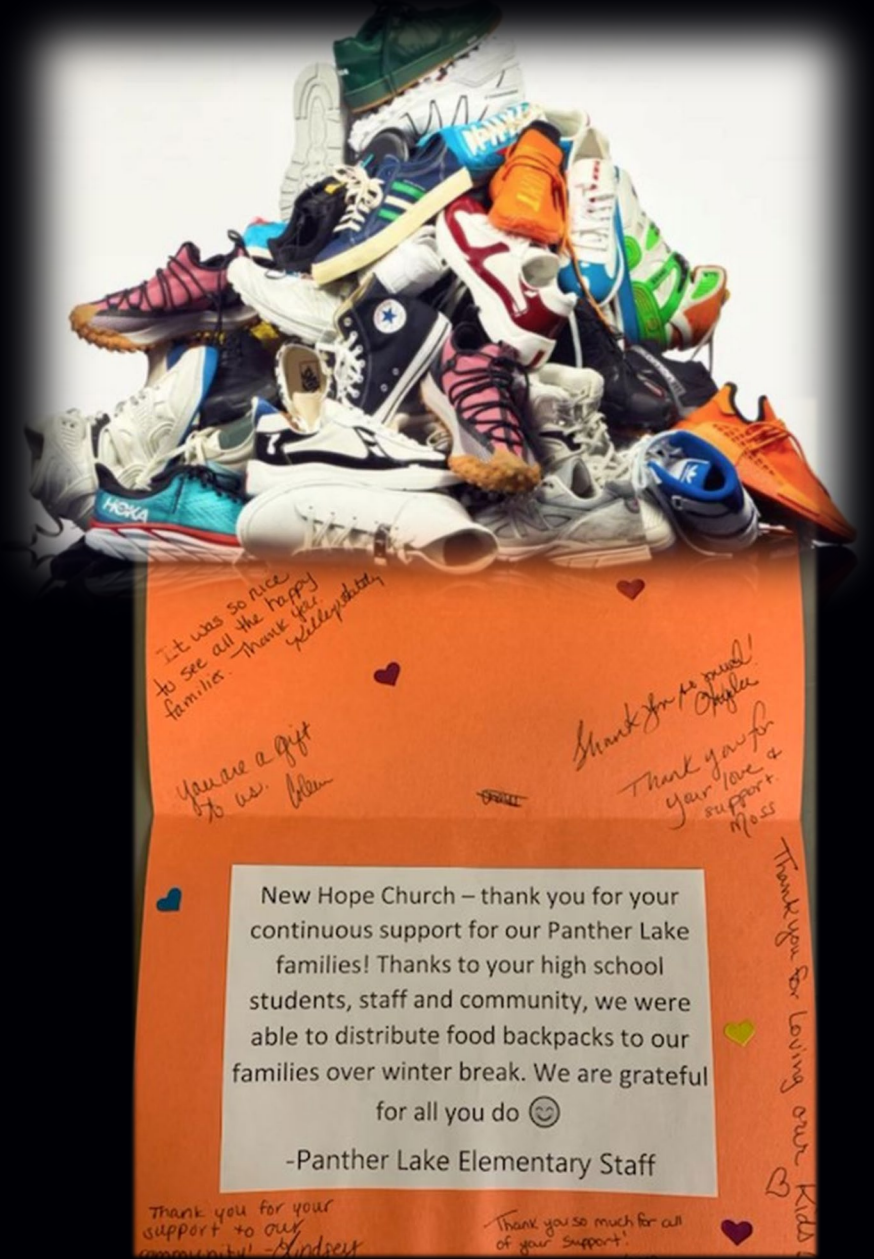 HOKA
It was so nice
to see all the happy
families. Thank you.
You are a gift
to us.
Thank you so much!
Thank you for
your love &
support.
Moss
New Hope Church – thank you for your
continuous support for our Panther Lake
families! Thanks to your high school
students, staff and community, we were
able to distribute food backpacks to our
families over winter break. We are grateful
for all you do 😊
-Panther Lake Elementary Staff
Thank you for Loving our Kids ♡
Thank you for your
support to our
community! -Lindsey
Thank you so much for all
of your support!